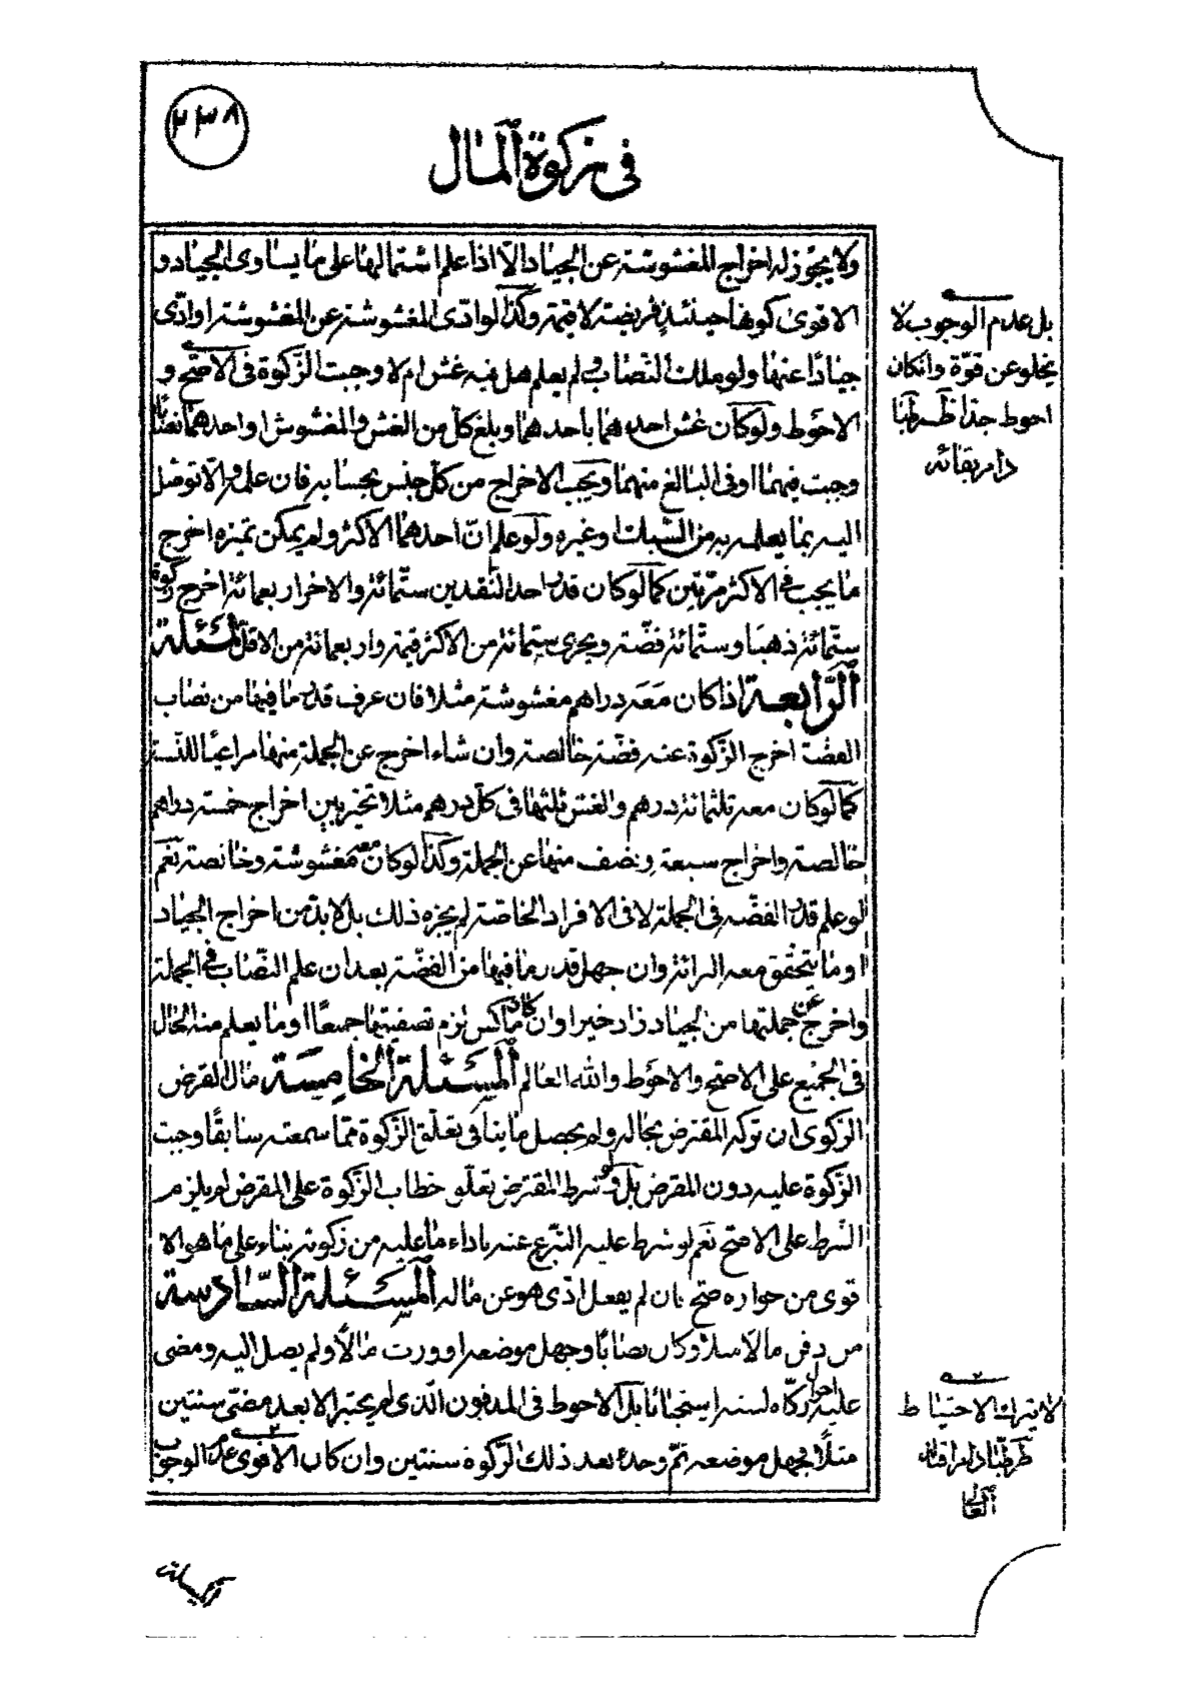 ٢٣٨
في زكوة المال
ولا يجوز له اخراج المغشوشة عن الجياد الّا اذا علم اشتمالها على ما يساوى الجياد و
الاقوى كونها حينئذٍ فريضة لا قيمة وكذا لو ادّى المغشوشة عن المغشوشة او ادّى
جيادًا عنها ولو ملك النّصاب و لم يعلم هل فيه غش ام لا وجبت الزّكوة في الاصحّ و
الاحوط ولو كان غش احدهما باحدهما وبلغ كلّ من الغش والمغشوش او احدهما نصابًا
وجبت فيهما او في البالغ منهما ويجب الاخراج من كلّ جنس بحسابه فان علمه والّا توصّل
اليه بما يعلمه به من السّبك او غيره ولو علم انّ احدهما الاكثر ولم يمكن تميزه اخرج
ما يجب في الاكثر مرّتين كما لو كان قدر احد النّقدين ستّمائة والاخر اربعمائة اخرج زكوة
ستّمائة ذهبًا وستّمائة فضّة ويجزى ستمائة من الاكثر قيمة واربعمائة من الاقلّ المسئلة
الرّابعة اذا كان معه دراهم مغشوشة مثلا فان عرف قدر ما فيها من نصاب
الفضّة اخرج الزّكوة عنه فضّة خالصة وان شاء اخرج عن الجملة منها مراعيًا للنّسبة
كما لو كان معه ثلثمائة درهم والغش ثلثها في كلّ درهم مثلا تخيّر بين اخراج خمسة دراهم
خالصة واخراج سبعة ونصف منها عن الجملة وكذا لو كان معه مغشوشة وخالصة نعم
لو علم قدر الفضّة في الجملة لا في الافراد الخاصّة لم يجزه ذلك بل لا بدّ من اخراج الجياد
او ما يتحقق معه البرائة وان جهل قدر ما فيها من الفضّة بعد ان علم النّصاب في الجملة
واخرج عن جملتها من الجياد زاد خيرا وان كان ماكس لزم تصفيتها جميعًا او ما يعلم منه الحال
في الجميع على الاصحّ والاحوط والله العالم المسئلة الخامسة مال القرض
الزكوى ان تركه المقترض بحاله ولم يحصل ما ينافي تعلّق الزّكوة ممّا سمعته سابقًا وجبت
الزّكوة عليه دون المقرض بل لو شرط المقترض تعلّق خطاب الزّكوة على المقرض لم يلزم
الشرط على الاصحّ نعم لو شرط عليه التبرّع عنه باداء ما عليه من زكوته بناء على ما هو الا
قوى من جوازه صحّ بان لم يفعل ادّى هو عن ماله المسئلة السّادسة
من دفن مالا مثلا وكان نصابًا وجهل موضعه او ورث مالًا ولم يصل اليه ومضى
عليه احوال زكّاه لسنة استحبابًا بل الاحوط في المدفون الّذى لم يختبر الا بعد مضىّ سنتين
مثلًا فجهل موضعه ثمّ وجده بعد ذلك الزّكوة سنتين وان كان الاقوى عدم الوجوب
بل عدم الوجوب لا
يخلو عن قوّة وان كان
احوط جدًا ظم طبا
دام بقائه
لا يترك الاحتياط
المسئلة